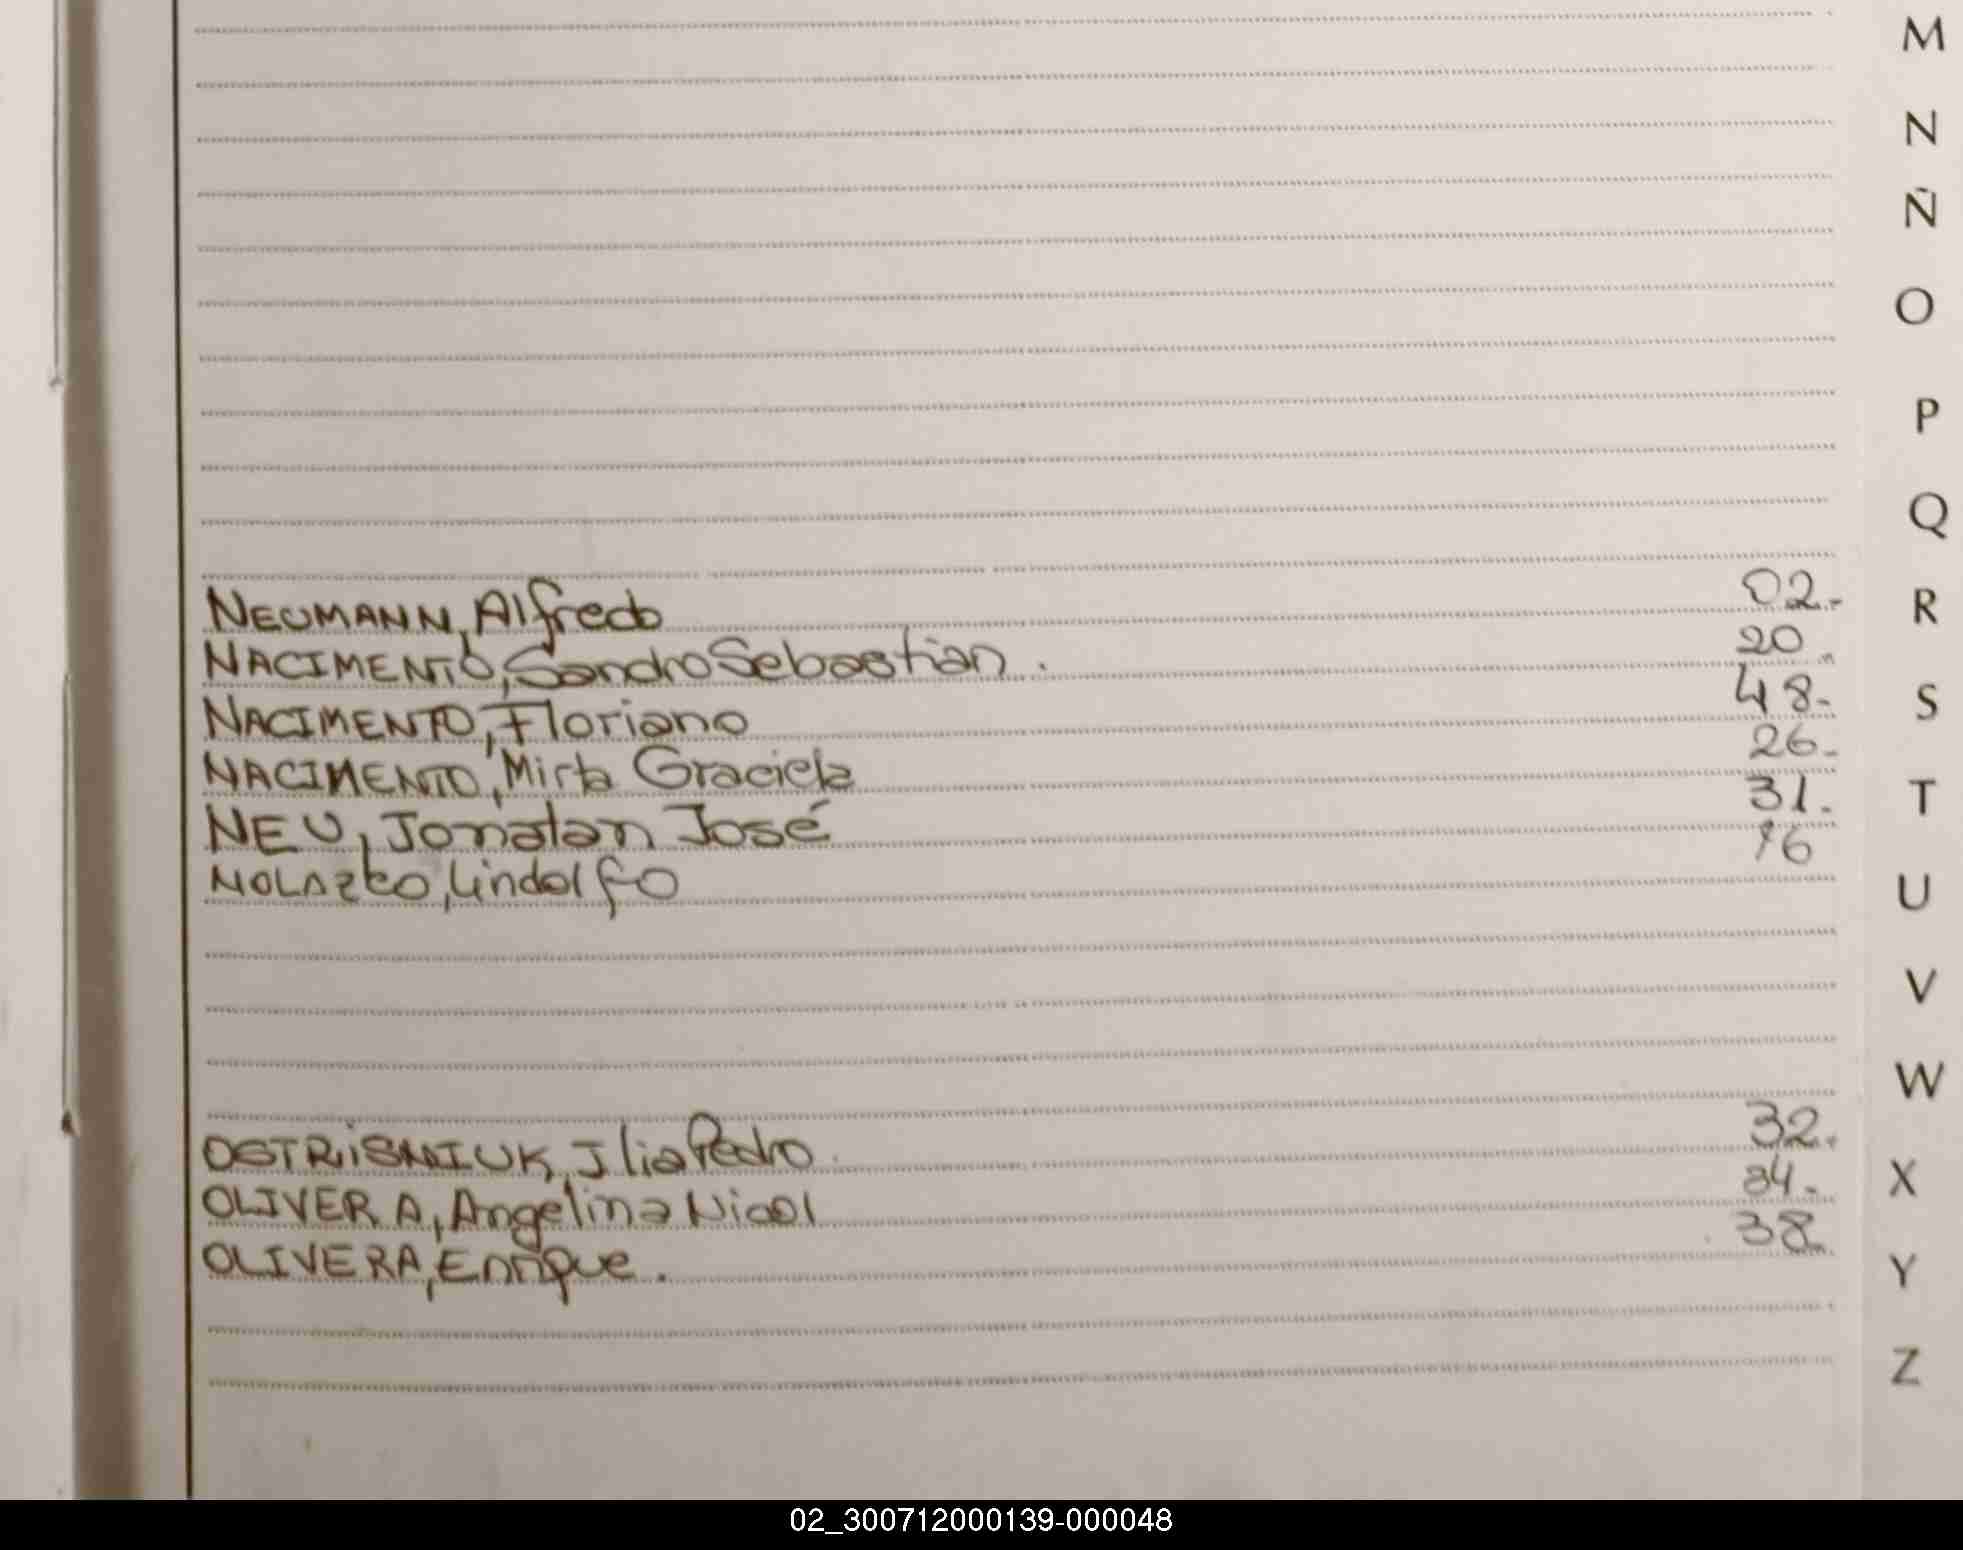 M
N
Ñ
O
P
Q
R
S
T
U
V
W
X
Y
Z
NEUMANN, Alfredo 02.
NACIMENTO, Sandro Sebastian. 20
NACIMENTO, Floriano 48.
NACIMENTO, Mirta Graciela 26.
NEU, Jonatan José 31.
NOLAZKO, Lindolfo 16
OSTRiSNIUK, Ilia Pedro. 32.
OLIVERA, Angelina Nicol 34.
OLIVERA, Enrique. 38
02_300712000139-000048